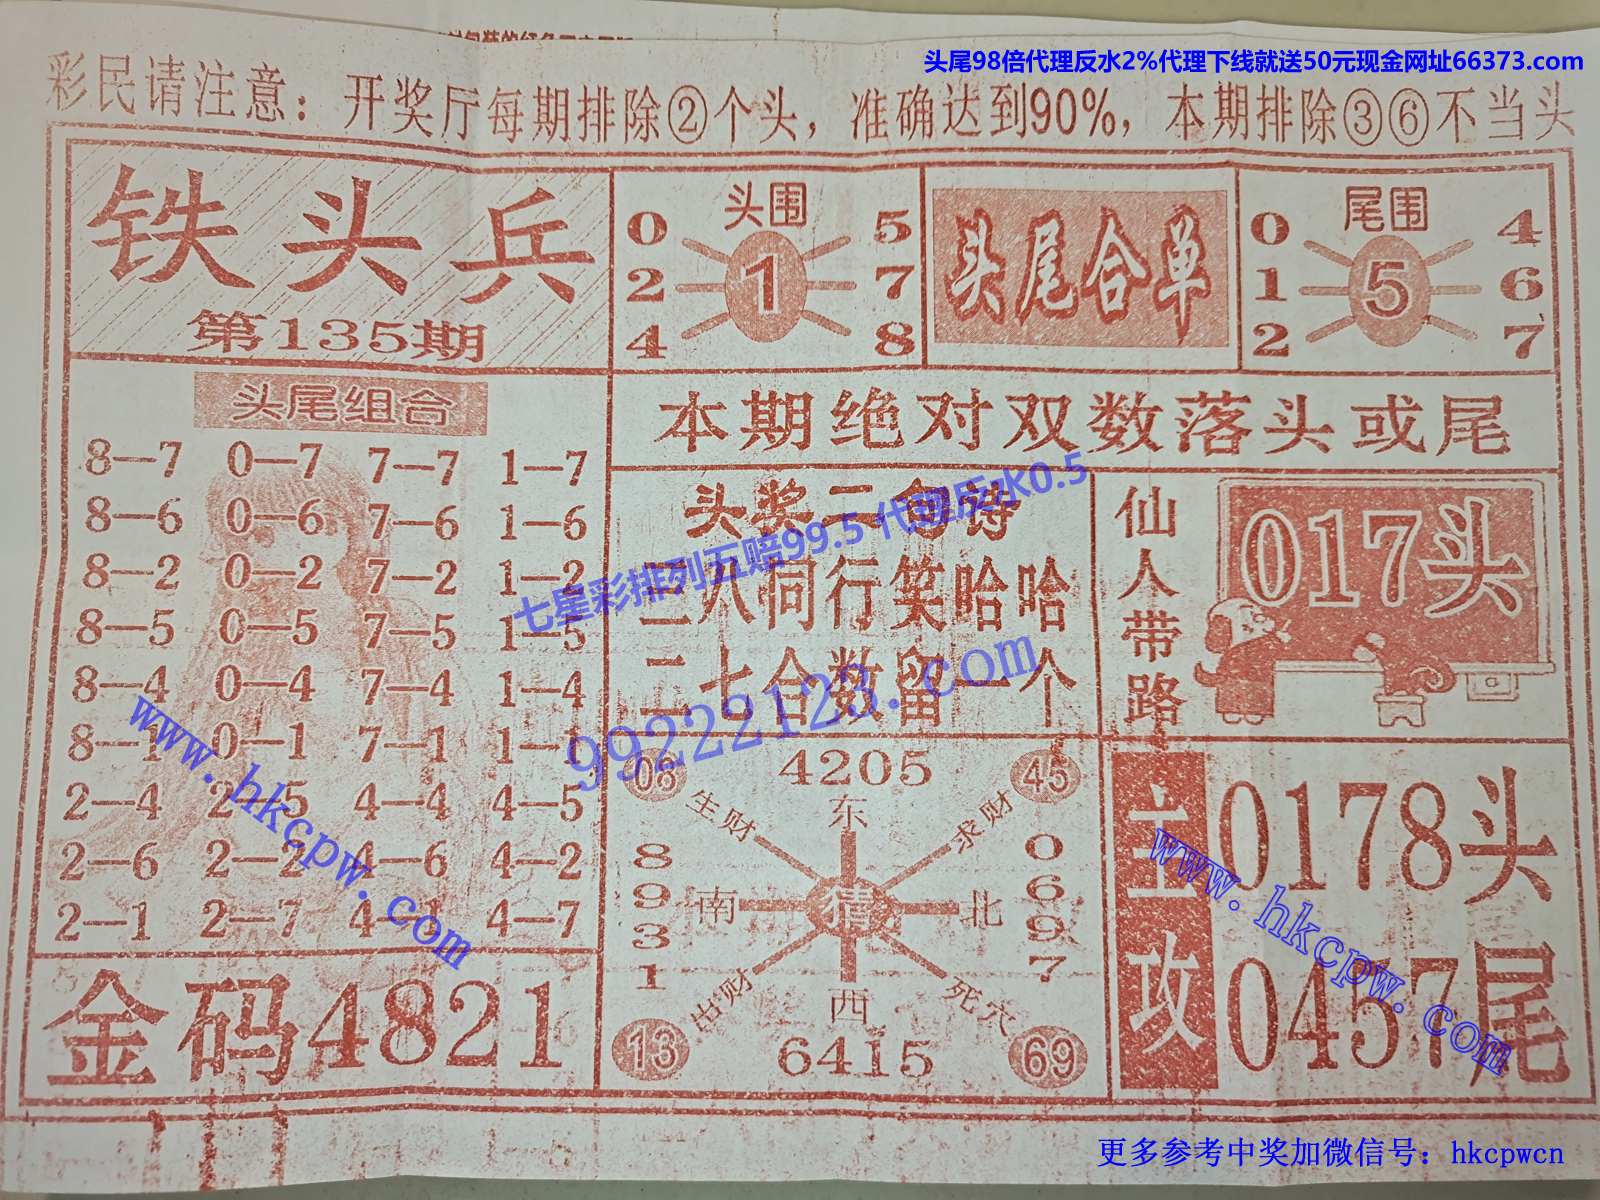 头尾98倍代理反水2%代理下线就送50元现金网址66373.com
彩民请注意：开奖厅每期排除②个头，准确达到90%，本期排除③⑥不当头
铁头兵
第135期
头围
0 5
2 1 7
4 8
头尾合单
尾围
0 4
1 5 6
2 7
头尾组合
8—7 0—7 7—7 1—7
8—6 0—6 7—6 1—6
8—2 0—2 7—2 1—2
8—5 0—5 7—5 1—5
8—4 0—4 7—4 1—4
8—1 0—1 7—1 1—1
2—4 2—5 4—4 4—5
2—6 2—2 4—6 4—2
2—1 2—7 4—1 4—7
金码4821
本期绝对双数落头或尾
头奖二句诗
八同行笑哈哈
二七合数留一个
七星彩排列五赔99.5 代理反水0.5
99222123.com
仙人带路
017头
08 4205 45
生财 东 求财
8931 南 猜 北 0697
出财 西 死穴
13 6415 69
主攻
0178头
0457尾
www.hkcpw.com
www.hkcpw.com
更多参考中奖加微信号：hkcpwcn